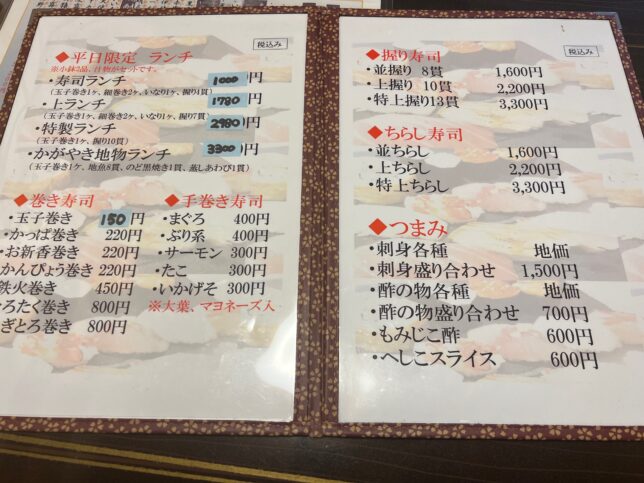 税込み
◆平日限定 ランチ
※小鉢2品、汁物がセットです。
・寿司ランチ 1000円
(玉子巻き1ケ、細巻き2ケ、いなり1ケ、握り4貫)
・上ランチ 1780円
(玉子巻き1ケ、細巻き2ケ、いなり1ケ、握り7貫)
・特製ランチ 2980円
(玉子巻き1ケ、握り10貫)
・かがやき地物ランチ 3300円
(玉子巻き1ケ、地魚8貫、のど黒焼き1貫、蒸しあわび1貫)
◆巻き寿司
・玉子巻き 150円
・かっぱ巻き 220円
・お新香巻き 220円
かんぴょう巻き220円
鉄火巻き 450円
ろたく巻き 800円
ぎとろ巻き 800円
◆手巻き寿司
・まぐろ 400円
・ぶり系 400円
・サーモン 300円
・たこ 300円
・いかげそ 300円
※大葉、マヨネーズ入
税込み
◆握り寿司
・並握り 8貫 1,600円
・上握り 10貫 2,200円
・特上握り13貫 3,300円
◆ちらし寿司
・並ちらし 1,600円
・上ちらし 2,200円
・特上ちらし 3,300円
◆つまみ
・刺身各種 地価
・刺身盛り合わせ 1,500円
・酢の物各種 地価
・酢の物盛り合わせ 700円
・もみじこ酢 600円
・へしこスライス 600円